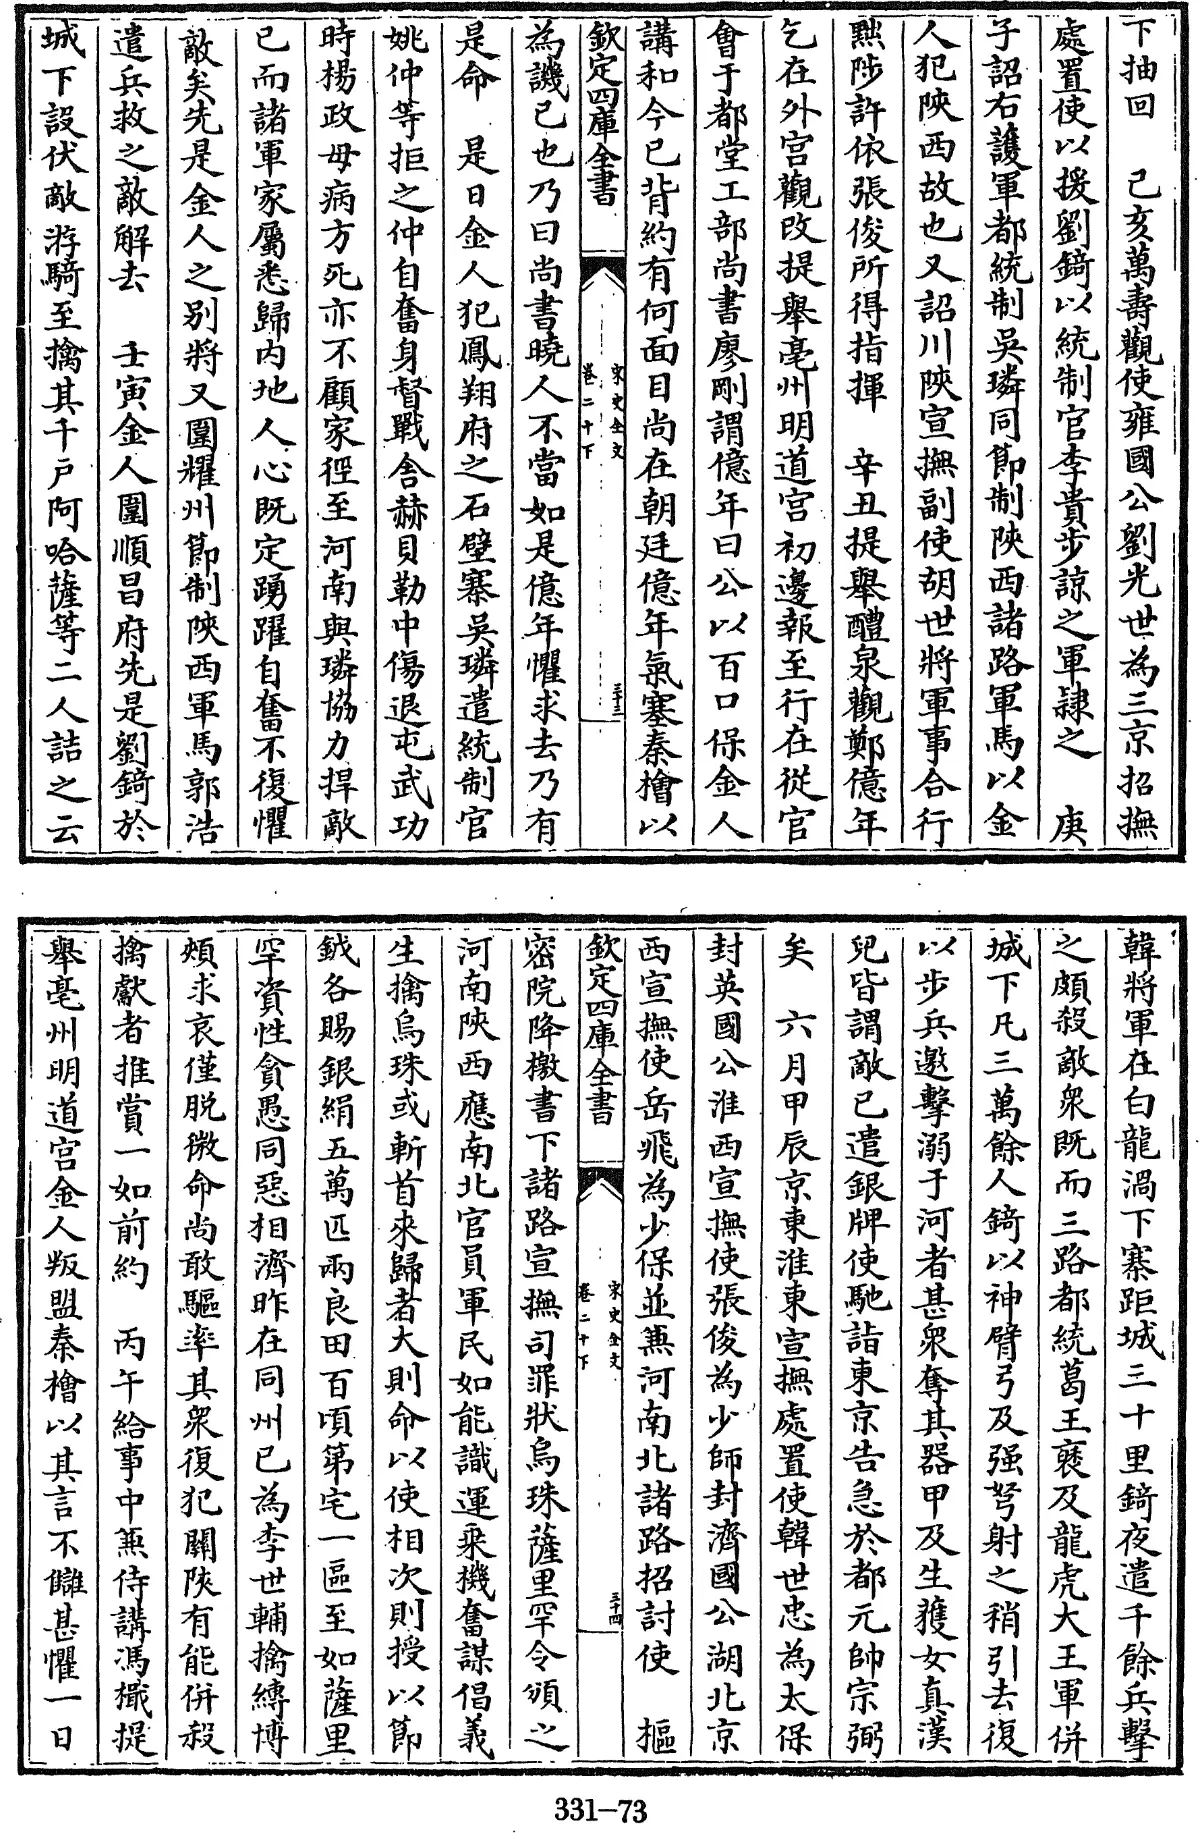 下抽回　己亥萬壽觀使雍國公劉光世為三京招撫
處置使以援劉錡以統制官李貴步諒之軍隷之　庚
子詔右護軍都統制吳璘同節制陜西諸路軍馬以金
人犯陜西故也又詔川陜宣撫副使胡世將軍事合行
黜陟許依張俊所得指揮　辛丑提舉醴泉觀鄭億年
乞在外宮觀改提舉亳州明道宮初邊報至行在從官
會于都堂工部尚書廖剛謂億年曰公以百口保金人
講和今已背約有何面目尚在朝廷億年氣塞秦檜以
欽定四庫全書
宋史全文
卷二十下
三十三
為譏已也乃曰尚書曉人不當如是億年懼求去乃有
是命　是日金人犯鳳翔府之石壁寨吳璘遣統制官
姚仲等拒之仲自奮身督戰舍赫貝勒中傷退屯武功
時楊政母病方死亦不顧家徑至河南與璘協力捍敵
已而諸軍家屬悉歸内地人心既定踴躍自奮不復懼
敵矣先是金人之别將又圍耀州節制陜西軍馬郭浩
遣兵救之敵解去　壬寅金人圍順昌府先是劉錡於
城下設伏敵游騎至擒其千戶阿哈薩等二人詰之云
韓將軍在白龍渦下寨距城三十里錡夜遣千餘兵擊
之頗殺敵衆既而三路都統葛王褎及龍虎大王軍併
城下凡三萬餘人錡以神臂弓及强弩射之稍引去復
以步兵邀擊溺于河者甚衆奪其器甲及生獲女真漢
兒皆謂敵已遣銀牌使馳詣東京告急於都元帥宗弼
矣　六月甲辰京東淮東宣撫處置使韓世忠為太保
封英國公淮西宣撫使張俊為少師封濟國公湖北京
西宣撫使岳飛為少保並兼河南北諸路招討使　樞
欽定四庫全書
宋史全文
卷二十下
三十四
密院降檄書下諸路宣撫司罪狀烏珠薩里罕令頒之
河南陜西應南北官員軍民如能識運乘機奮謀倡義
生擒烏珠或斬首來歸者大則命以使相次則授以節
鉞各賜銀絹五萬匹兩良田百頃第宅一區至如薩里
罕資性貪愚同惡相濟昨在同州已為李世輔擒縛博
頰求哀僅脱微命尚敢驅率其衆復犯關陜有能併殺
擒獻者推賞一如前約　丙午給事中兼侍講馮檝提
舉亳州明道宮金人叛盟秦檜以其言不讎甚懼一日
331-73